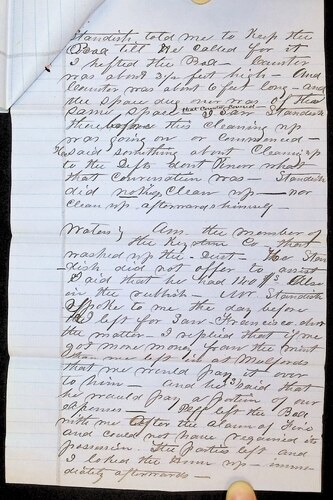 Standish told me to Keep the
Box till he called for it
I hefted the Box — Counter
was about 3½ feet high — And
Counter was about 6 feet long — and
the space dug over was of the
same space — I saw Standish
there before this cleaning up
was going on or commenced —
He said something about Cleaning up
to the Defts dont Know what
that Conversation was — Standish
did nothing Clean up — nor
Clean up afterwards himself —
Waters Am the member of
the Keystone Co that
washed up the Dust — The Stan
dish did not offer to assist
Said that he had 1100 $
in the rubbish — Mr Standish
Spoke to me the day before
I left for San Francisco about
the matter — I replied that if we
got more money from the mint
than we left it at Mulfords
that we would pay it over
to him — and he said that
he would pay a portion of our
expenses — Deft left the Box
with me After the Claim of Fino
and could not have regained its
possession. The parties left and
I locked the door up — imme-
diately afterwards —